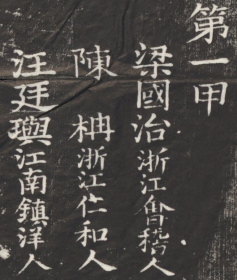 第一甲
梁國治浙江會稽人
陳枏浙江仁和人
汪廷璵江南鎮洋人